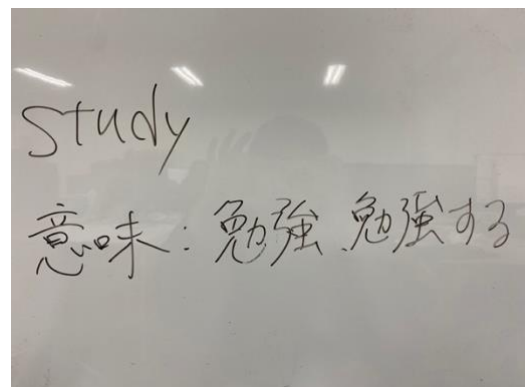 study
意味:勉強、勉強する